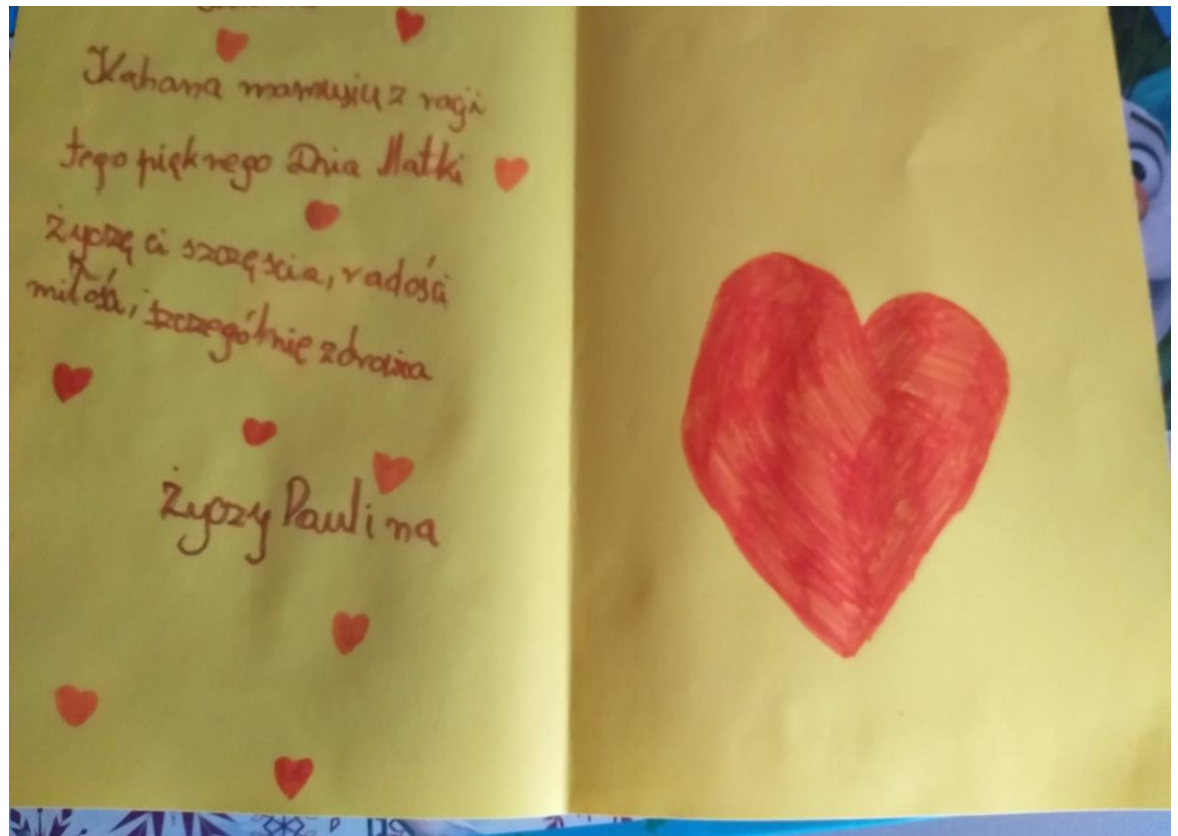 Kahana mamusiu z ragi
tego pięknego Dnia Matki
życzę ci szczęścia, radości
miłości, szczególnie zdrowia
życzy Paulina